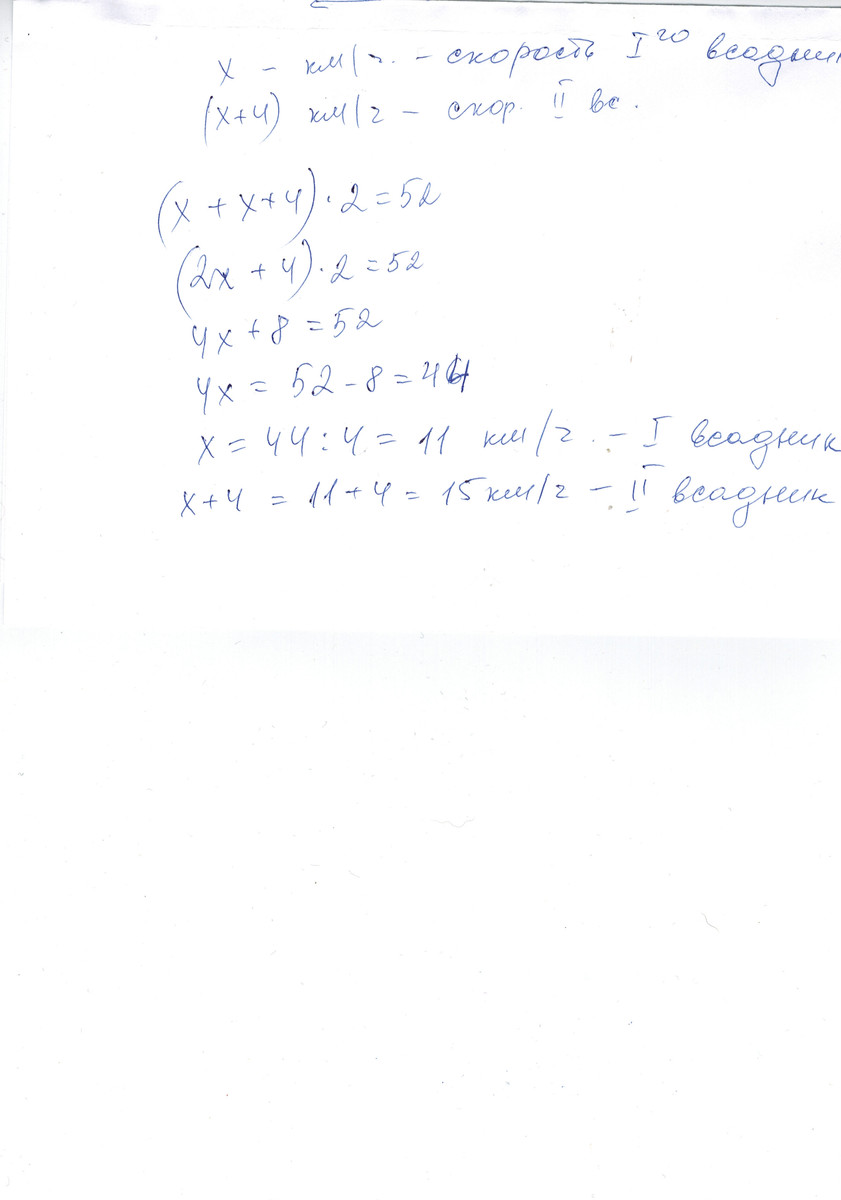 x - км/ч. - скорость I го всадник
(x+4) км/ч - скор. II вс.
(x + x+4)·2=52
(2x + 4)·2=52
4x+8=52
4x = 52-8=44
x = 44:4= 11 км/ч. - I всадник
x+4 = 11+4 = 15км/ч - II всадник